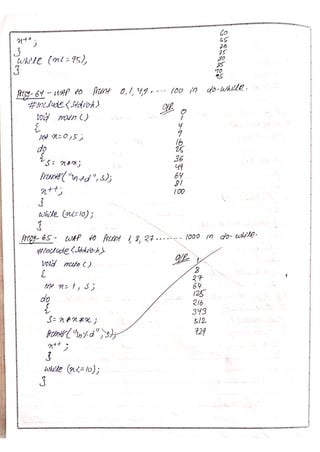 n++;
}
while (n<=95);
}
60
65
70
75
80
85
90
95
Prog-64 - WAP to Print 0,1,4,9.... 100 in do-while.
#include <stdio.h>
void main()
{
int n=0, s;
do
{
s= n*n;
Printf("\n%d", s);
n++;
}
while (n<=10);
}
O/P
0
1
4
9
16
25
36
49
64
81
100
Prog-65 - WAP to Print 1, 8, 27 ....... 1000 in do-while.
#include <stdio.h>
void main()
{
int n=1, s;
do
{
s= n*n*n;
printf("\n%d", s);
n++;
}
while (n<=10);
}
O/P
1
8
27
64
125
216
343
512
729